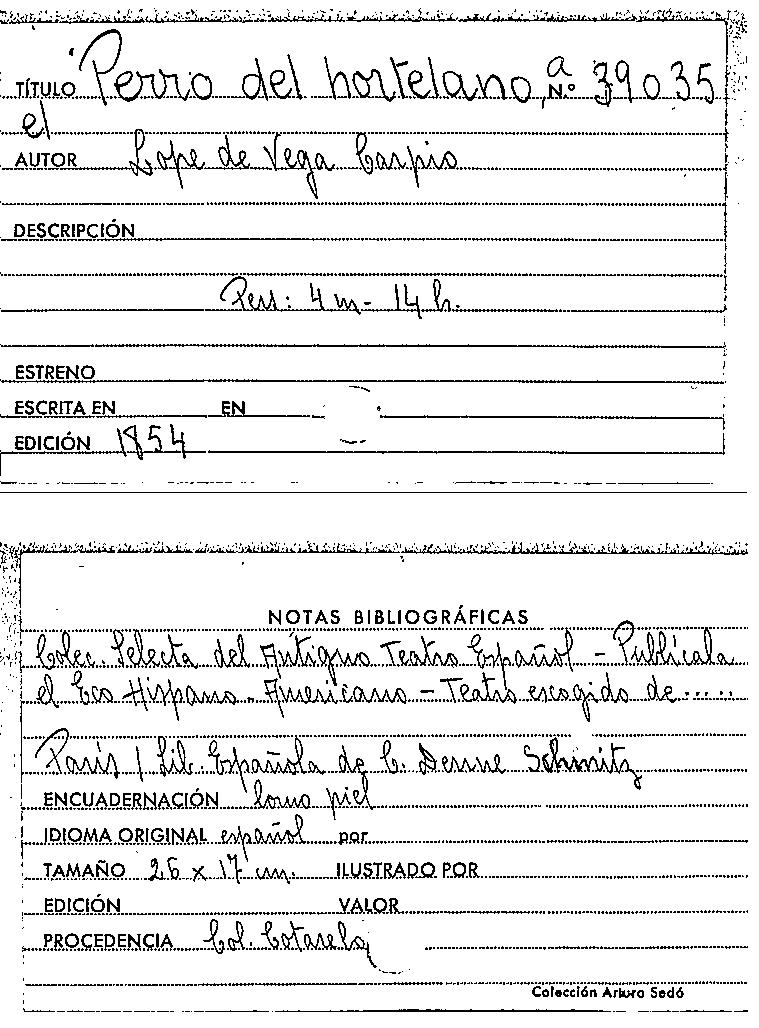 TÍTULO Perro del hortelano, a N.º 39035
el
AUTOR Lope de Vega Carpio
DESCRIPCIÓN
Pers: 4 m- 14 h.
ESTRENO
ESCRITA EN EN
EDICIÓN 1854
NOTAS BIBLIOGRÁFICAS
Colec. Selecta del Antiguo Teatro Español - Publícala
el Eco Hispano-Americano - Teatro escogido de .....
París / Lib. Española de C. Denne Schmitz
ENCUADERNACIÓN lomo piel
IDIOMA ORIGINAL español por
TAMAÑO 26 x 17 cm. ILUSTRADO POR
EDICIÓN VALOR
PROCEDENCIA Col. Cotarelo
Colección Arturo Sedó